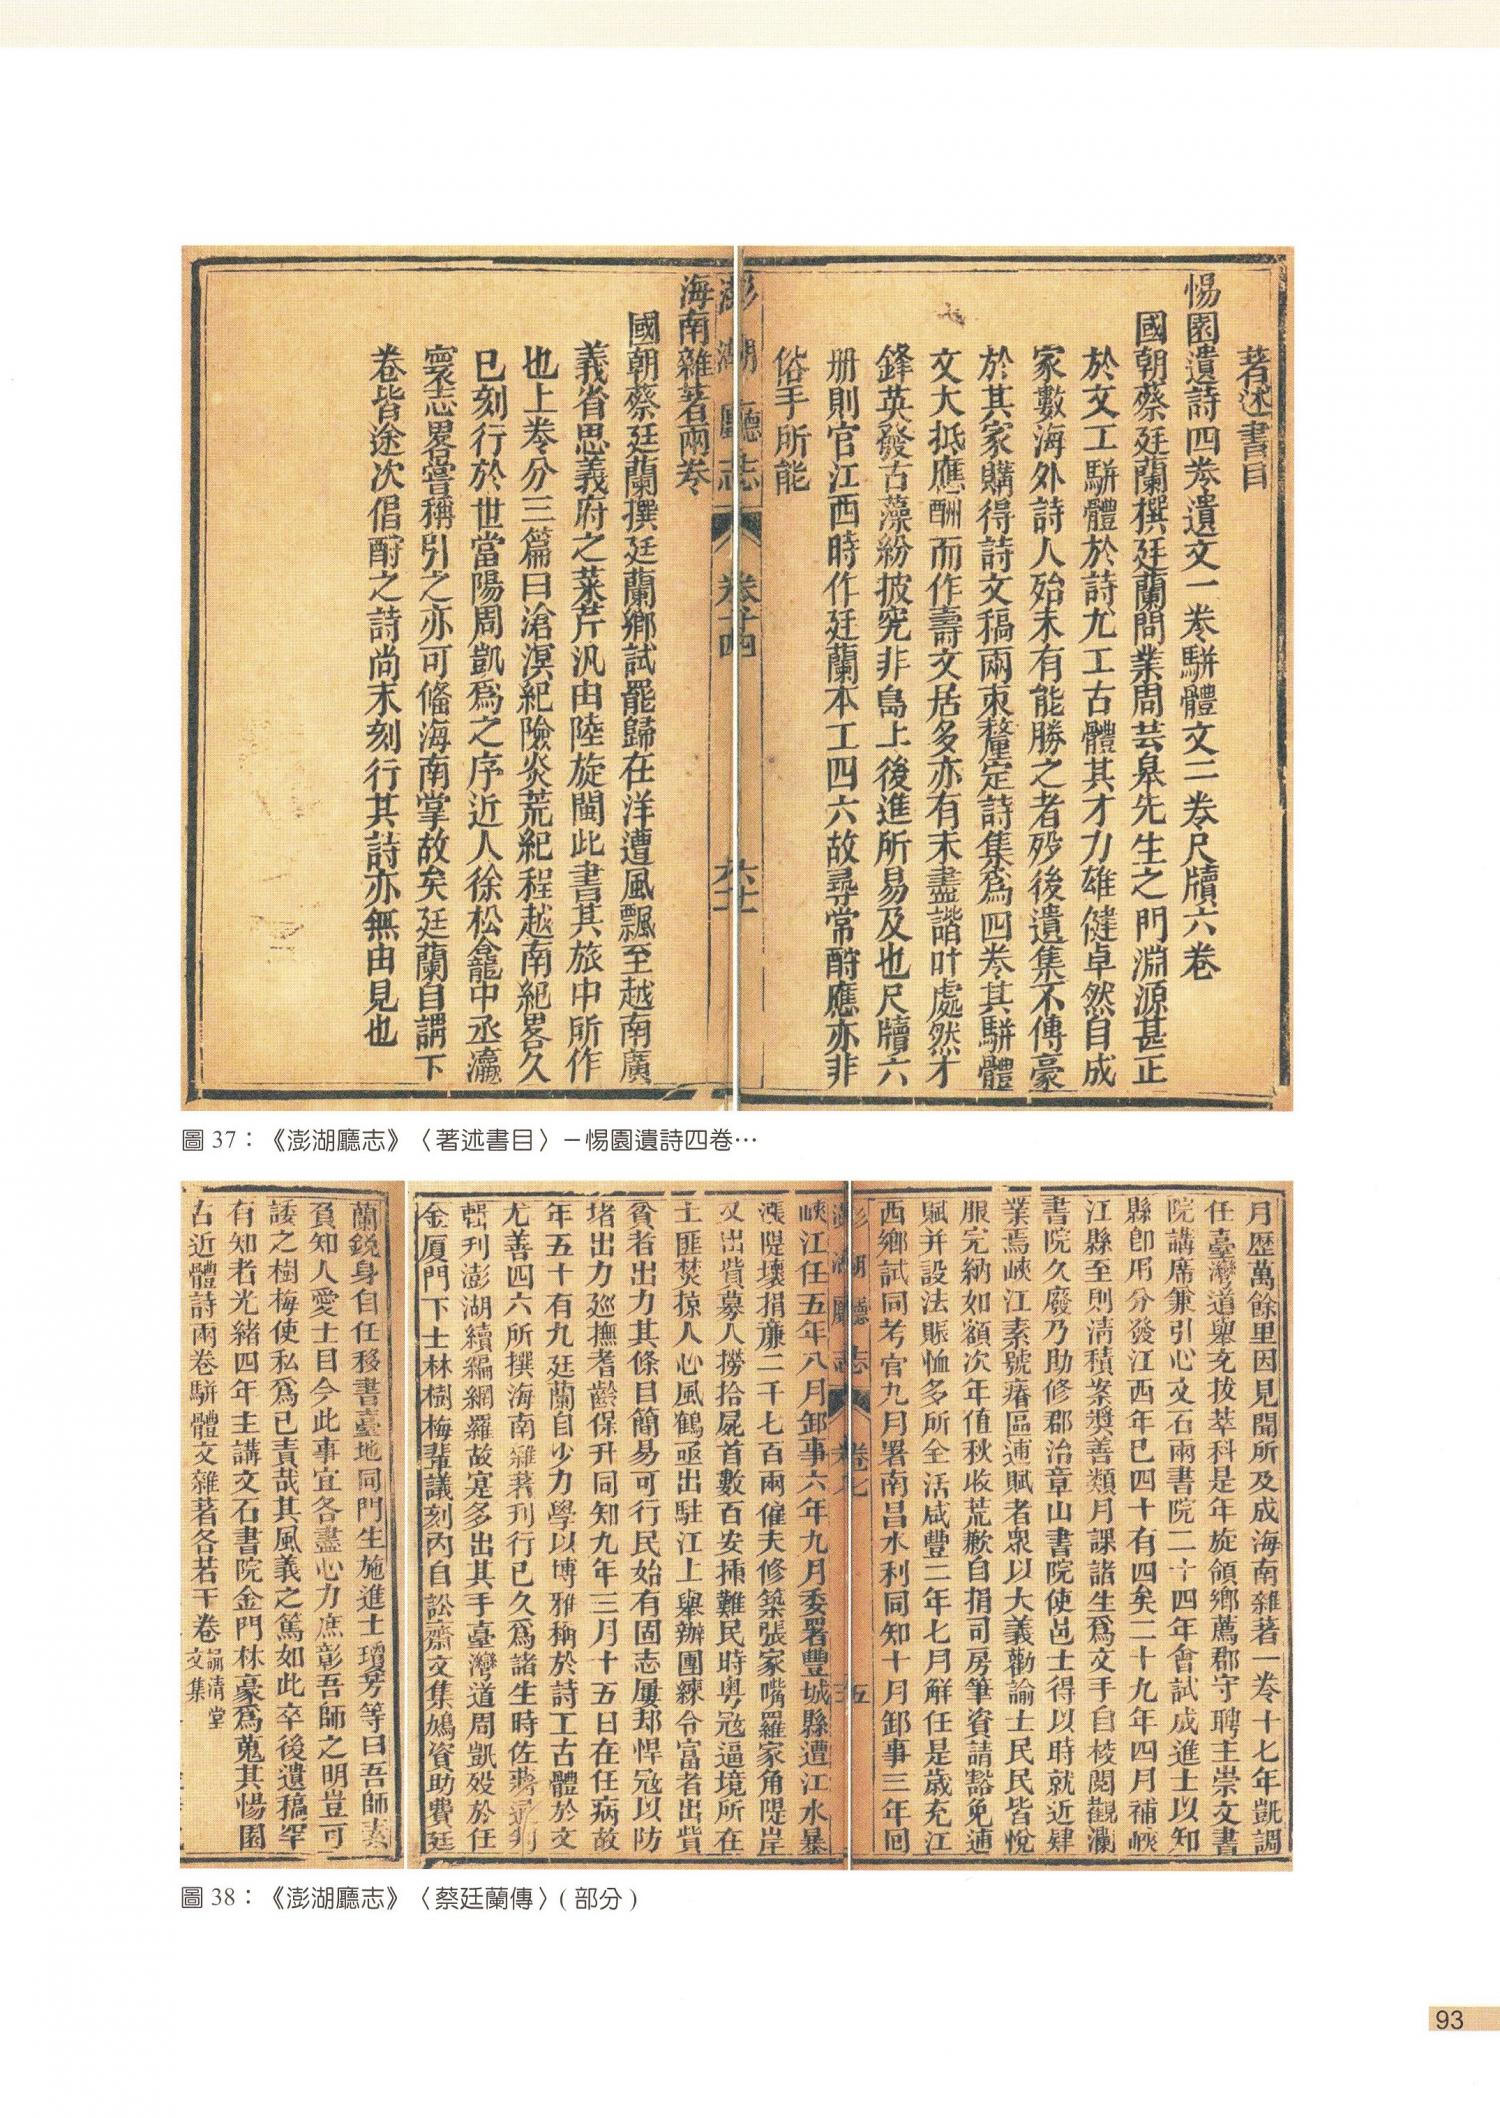 著述書目
惕園遺詩四卷遺文一卷駢體文二卷尺牘六卷
國朝蔡廷蘭撰廷蘭問業周芸皋先生之門淵源甚正
於文工駢體於詩尤工古體其才力雄健卓然自成
家數海外詩人殆未有能勝之者歿後遺集不傳豪
於其家購得詩文稿兩束釐定詩集為四卷其駢體
文大抵應酬而作壽文居多亦有未盡諧叶處然才
鋒英發古藻紛披究非島上後進所易及也尺牘六
册則官江西時作廷蘭本工四六故尋常酧應亦非
俗手所能
澎湖廳志
卷十四
六十一
海南雜著兩卷
國朝蔡廷蘭撰廷蘭鄉試罷歸在洋遭風飄至越南廣
義省思義府之菜芹汛由陸旋閩此書其旅中所作
也上卷分三篇曰滄溟紀險炎荒紀程越南紀畧久
已刻行於世當陽周凱為之序近人徐松龕中丞瀛
寰志畧嘗稱引之亦可備海南掌故矣廷蘭自謂下
卷皆途次倡酧之詩尚未刻行其詩亦無由見也
圖 37：《澎湖廳志》〈著述書目〉－惕園遺詩四卷…
月歷萬餘里因見聞所及成海南雜著一卷十七年凱調
任臺灣道舉充拔萃科是年旋領鄉薦郡守聘主崇文書
院講席兼引心文石兩書院二十四年會試成進士以知
縣即用分發江西年已四十有四矣二十九年四月補峽
江縣至則清積案獎善類月課諸生為文手自校閱觀瀾
書院久廢乃助修郡治章山書院使邑士得以時就近肄
業焉峽江素號瘠區逋賦者眾以大義勸諭士民民皆悅
服完納如額次年值秋收荒歉自捐司房筆資請豁免逋
賦并設法賑恤多所全活咸豐二年七月解任是歲充江
西鄉試同考官九月署南昌水利同知十月卸事三年回
澎湖廳志
卷七
五
峽江任五年八月卸事六年九月委署豐城縣遭江水暴
漲隄壞捐廉二千七百兩僱夫修築張家嘴羅家角隄岸
又出貲募人撈拾屍首數百安插難民時粵寇逼境所在
土匪焚掠人心風鶴亟出駐江上舉辦團練令富者出貲
貧者出力其條目簡易可行民始有固志屢却悍寇以防
堵出力巡撫耆齡保升同知九年三月十五日在任病故
年五十有九廷蘭自少力學以博雅稱於詩工古體於文
尤善四六所撰海南雜著刊行已久為諸生時佐蔣通判
鏞刊澎湖續編網羅故寔多出其手臺灣道周凱歿於任
金厦門下士林樹梅輩議刻內自訟齋文集鳩資助費廷
蘭銳身自任移書臺地同門生施進士瓊芳等曰吾師素
負知人愛士目今此事宜各盡心力庶彰吾師之明豈可
諉之樹梅使私為已責哉其風義之篤如此卒後遺稿罕
有知者光緒四年主講文石書院金門林豪為蒐其惕園
古近體詩兩卷駢體文雜著各若干卷
清堂
文集
圖 38：《澎湖廳志》〈蔡廷蘭傳〉( 部分 )
93